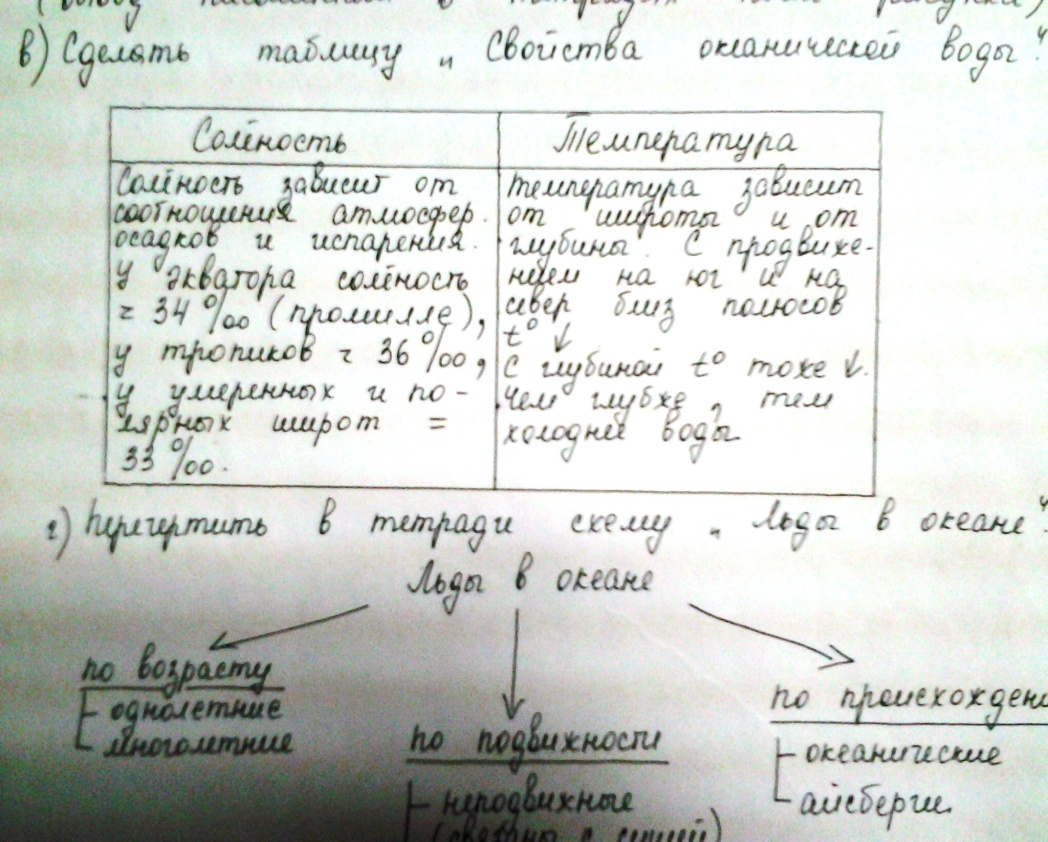 в) Сделать таблицу „Свойства океанической воды".
Солёность
Солёность зависит от
соотношения атмосфер.
осадков и испарения.
У экватора солёность
= 34 ‰ (промилле),
у тропиков = 36 ‰,
у умеренных и по-
лярных широт =
33 ‰.
Температура
температура зависит
от широты и от
глубины. С продвиже-
нием на юг и на
север близ полюсов
t° ↓
С глубиной t° тоже ↓.
Чем глубже, тем
холоднее воды
г) Перечертить в тетради схему „Льды в океане".
Льды в океане
по возрасту
однолетние
многолетние
по подвижности
неподвижные
(связаны с сушей)
по происхождени
океанические
айсберги.